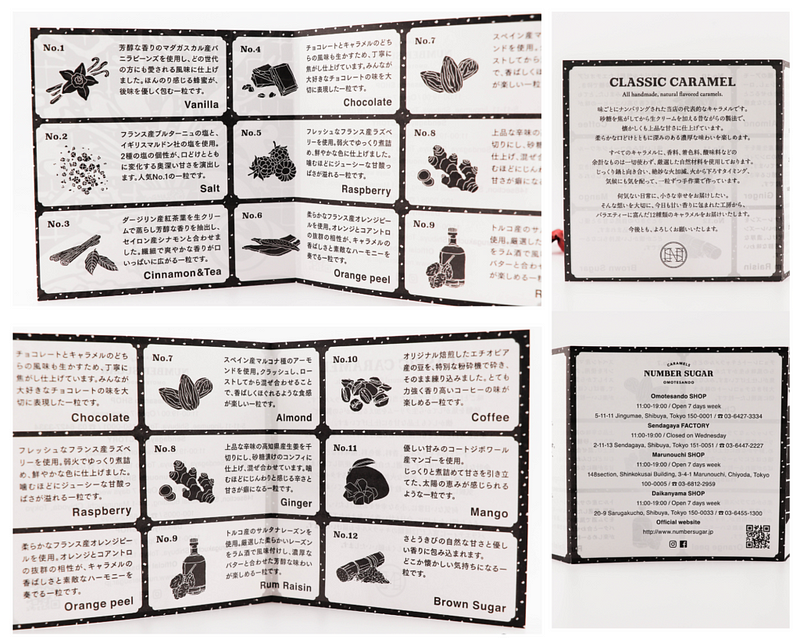 No.1
芳醇な香りのマダガスカル産バ
ニラビーンズを使用し、どの世代
の方にも愛される風味に仕上げ
ました。ほんのり感じる蜂蜜が、
後味を優しく包む一粒です。
Vanilla
No.4
チョコレートとキャラメルのどち
らの風味も生かすため、丁寧に
焦がし仕上げています。みんなが
大好きなチョコレートの味を大
切に表現した一粒です。
Chocolate
No.7
スペイン産マ
ンドを使用。
ストしてから
で、香ばしく
が楽しい一粒
No.2
フランス産ブルターニュの塩と、
イギリスマルドン社の塩を使用。
2種の塩の個性が、口どけととも
に変化する奥深い甘さを演出し
ます。人気No.1の一粒です。
Salt
No.5
フレッシュなフランス産ラズベ
リーを使用。弱火でゆっくり煮詰
め、鮮やかな色に仕上げました。
噛むほどにジューシーな甘酸っ
ぱさが溢れる一粒です。
Raspberry
No.8
上品な辛味の
切りにし、砂糖
仕上げ、混ぜ
むほどにじん
甘さが癖にな
No.3
ダージリン産紅茶葉を生クリー
ムで蒸らし芳醇な香りを抽出し、
セイロン産シナモンと合わせま
した。繊細で爽やかな香りが口
いっぱいに広がる一粒です。
Cinnamon&Tea
No.6
柔らかなフランス産オレンジピー
ルを使用。オレンジとコアントロー
の抜群の相性が、キャラメルの
香ばしさと素敵なハーモニーを
奏でる一粒です。
Orange peel
No.9
トルコ産のサ
使用。厳選した
をラム酒で風
バターと合わせ
が楽しめる一粒
R
CLASSIC CARAMEL
All handmade, natural flavored caramels.
味ごとにナンバリングされた当店の代表的なキャラメルです。
砂糖を焦がしてから生クリームを加える昔ながらの製法で、
懐かしくも上品な甘さに仕上げています。
柔らかな口どけとともに深みのある濃厚な味わいを楽しめます。
すべてのキャラメルに、香料、着色料、酸味料などの
余計なものは一切使わず、厳選した自然材料を使用しております。
じっくり鍋と向き合い、絶妙な火加減、火から下ろすタイミング、
気候にも気を配って、一粒ずつ手作業で作っています。
何気ない日常に、小さな幸せをお届けしたい。
そんな想いを大切に、今日も甘い香りに包まれた工房から、
バラエティーに富んだ12種類のキャラメルをお届けいたします。
今後とも、よろしくお願いいたします。
チョコレートとキャラメルのどち
らの風味も生かすため、丁寧に
焦がし仕上げています。みんなが
大好きなチョコレートの味を大
切に表現した一粒です。
Chocolate
No.7
スペイン産マルコナ種のアーモ
ンドを使用。クラッシュし、ロー
ストしてから混ぜ合わせること
で、香ばしくほぐれるような食感
が楽しい一粒です。
Almond
No.10
オリジナル焙煎したエチオピア
産の豆を、特別な粉砕機で砕き、
そのまま練り込みました。とても
力強く香り高いコーヒーの味が
楽しめる一粒です。
Coffee
フレッシュなフランス産ラズベ
リーを使用。弱火でゆっくり煮詰
め、鮮やかな色に仕上げました。
噛むほどにジューシーな甘酸っ
ぱさが溢れる一粒です。
Raspberry
No.8
上品な辛味の高知県産生姜を千
切りにし、砂糖漬けのコンフィに
仕上げ、混ぜ合わせています。噛
むほどにじんわりと感じる辛さと
甘さが癖になる一粒です。
Ginger
No.11
優しい甘みのコートジボワール
産マンゴーを使用。
じっくりと煮詰めて甘さを引き立
てた、太陽の恵みが感じられる
ような一粒です。
Mango
柔らかなフランス産オレンジピー
ルを使用。オレンジとコアントロー
の抜群の相性が、キャラメルの
香ばしさと素敵なハーモニーを
奏でる一粒です。
Orange peel
No.9
トルコ産のサルタナレーズンを
使用。厳選した柔らかいレーズン
をラム酒で風味付けし、濃厚な
バターと合わせた芳醇な味わい
が楽しめる一粒です。
Rum Raisin
No.12
さとうきびの自然な甘さと優し
い香りに包み込まれます。
どこか懐かしい気持ちになる一
粒です。
Brown Sugar
CARAMELS
NUMBER SUGAR
OMOTESANDO
Omotesando SHOP
11:00-19:00 / Open 7 days week
5-11-11 Jingumae, Shibuya, Tokyo 150-0001 / ☎ 03-6427-3334
Sendagaya FACTORY
11:00-19:00 / Closed on Wednesday
2-11-13 Sendagaya, Shibuya, Tokyo 151-0051 / ☎ 03-6447-2227
Marunouchi SHOP
11:00-19:00 / Open 7 days week
148section, Shinkokusai Building, 3-4-1 Marunouchi, Chiyoda, Tokyo
100-0005 / ☎ 03-6812-2959
Daikanyama SHOP
11:00-19:00 / Open 7 days week
20-9 Sarugakucho, Shibuya, Tokyo 150-0033 / ☎ 03-6455-1300
Official website
http://www.numbersugar.jp